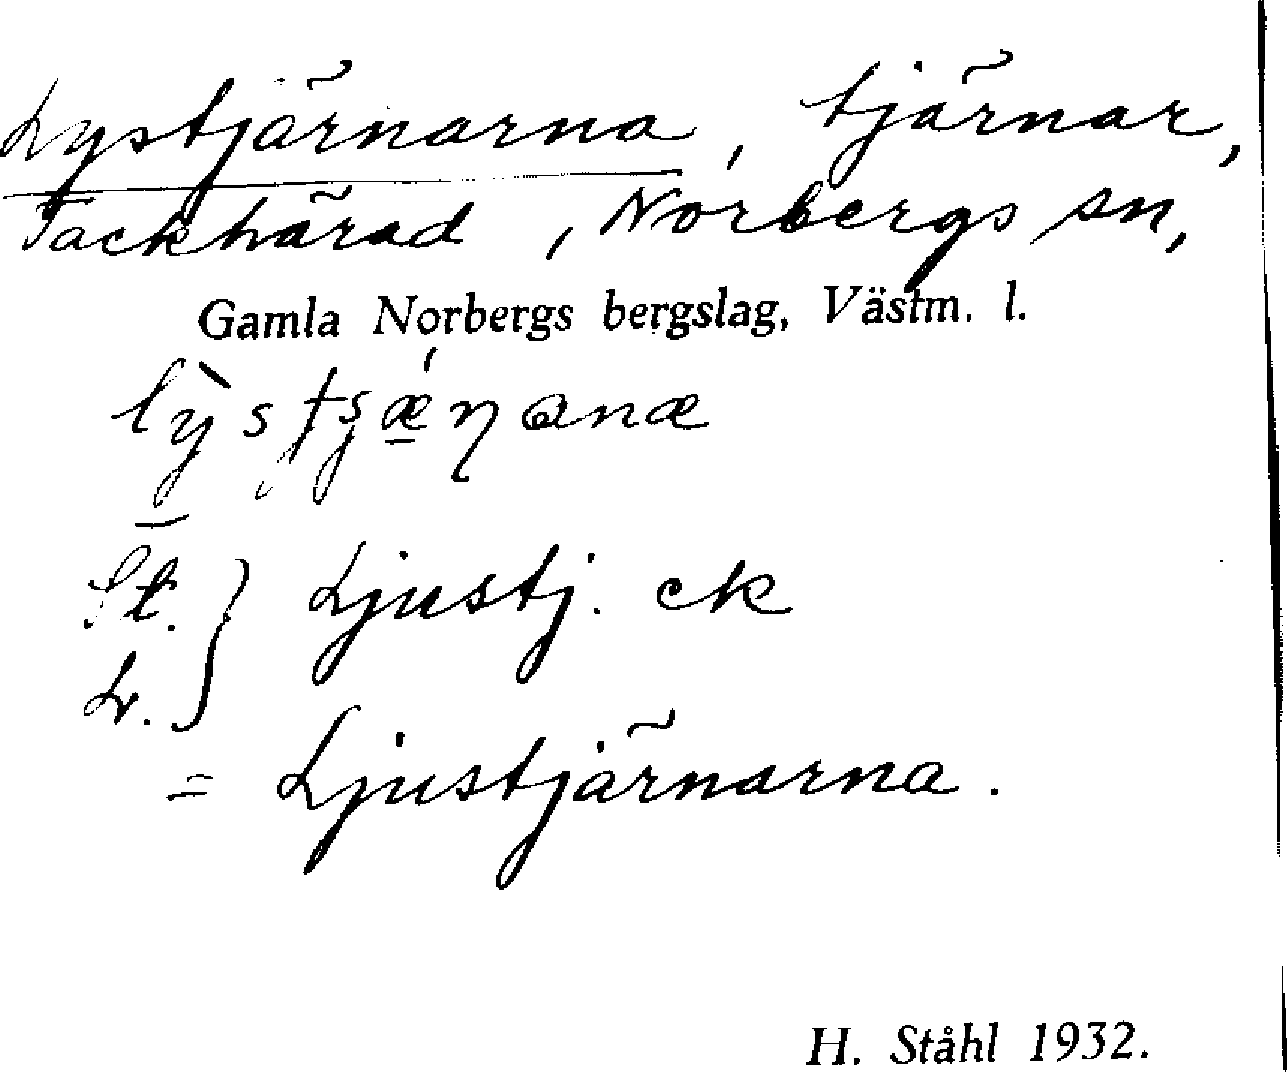 Lystjärnarna, tjärnar,
Tackhärad, Norbergs sn,
Gamla Norbergs bergslag, Västm. l.
St. } Ljustj. ek
L.
= Ljustjärnarna.
H. Ståhl 1932.